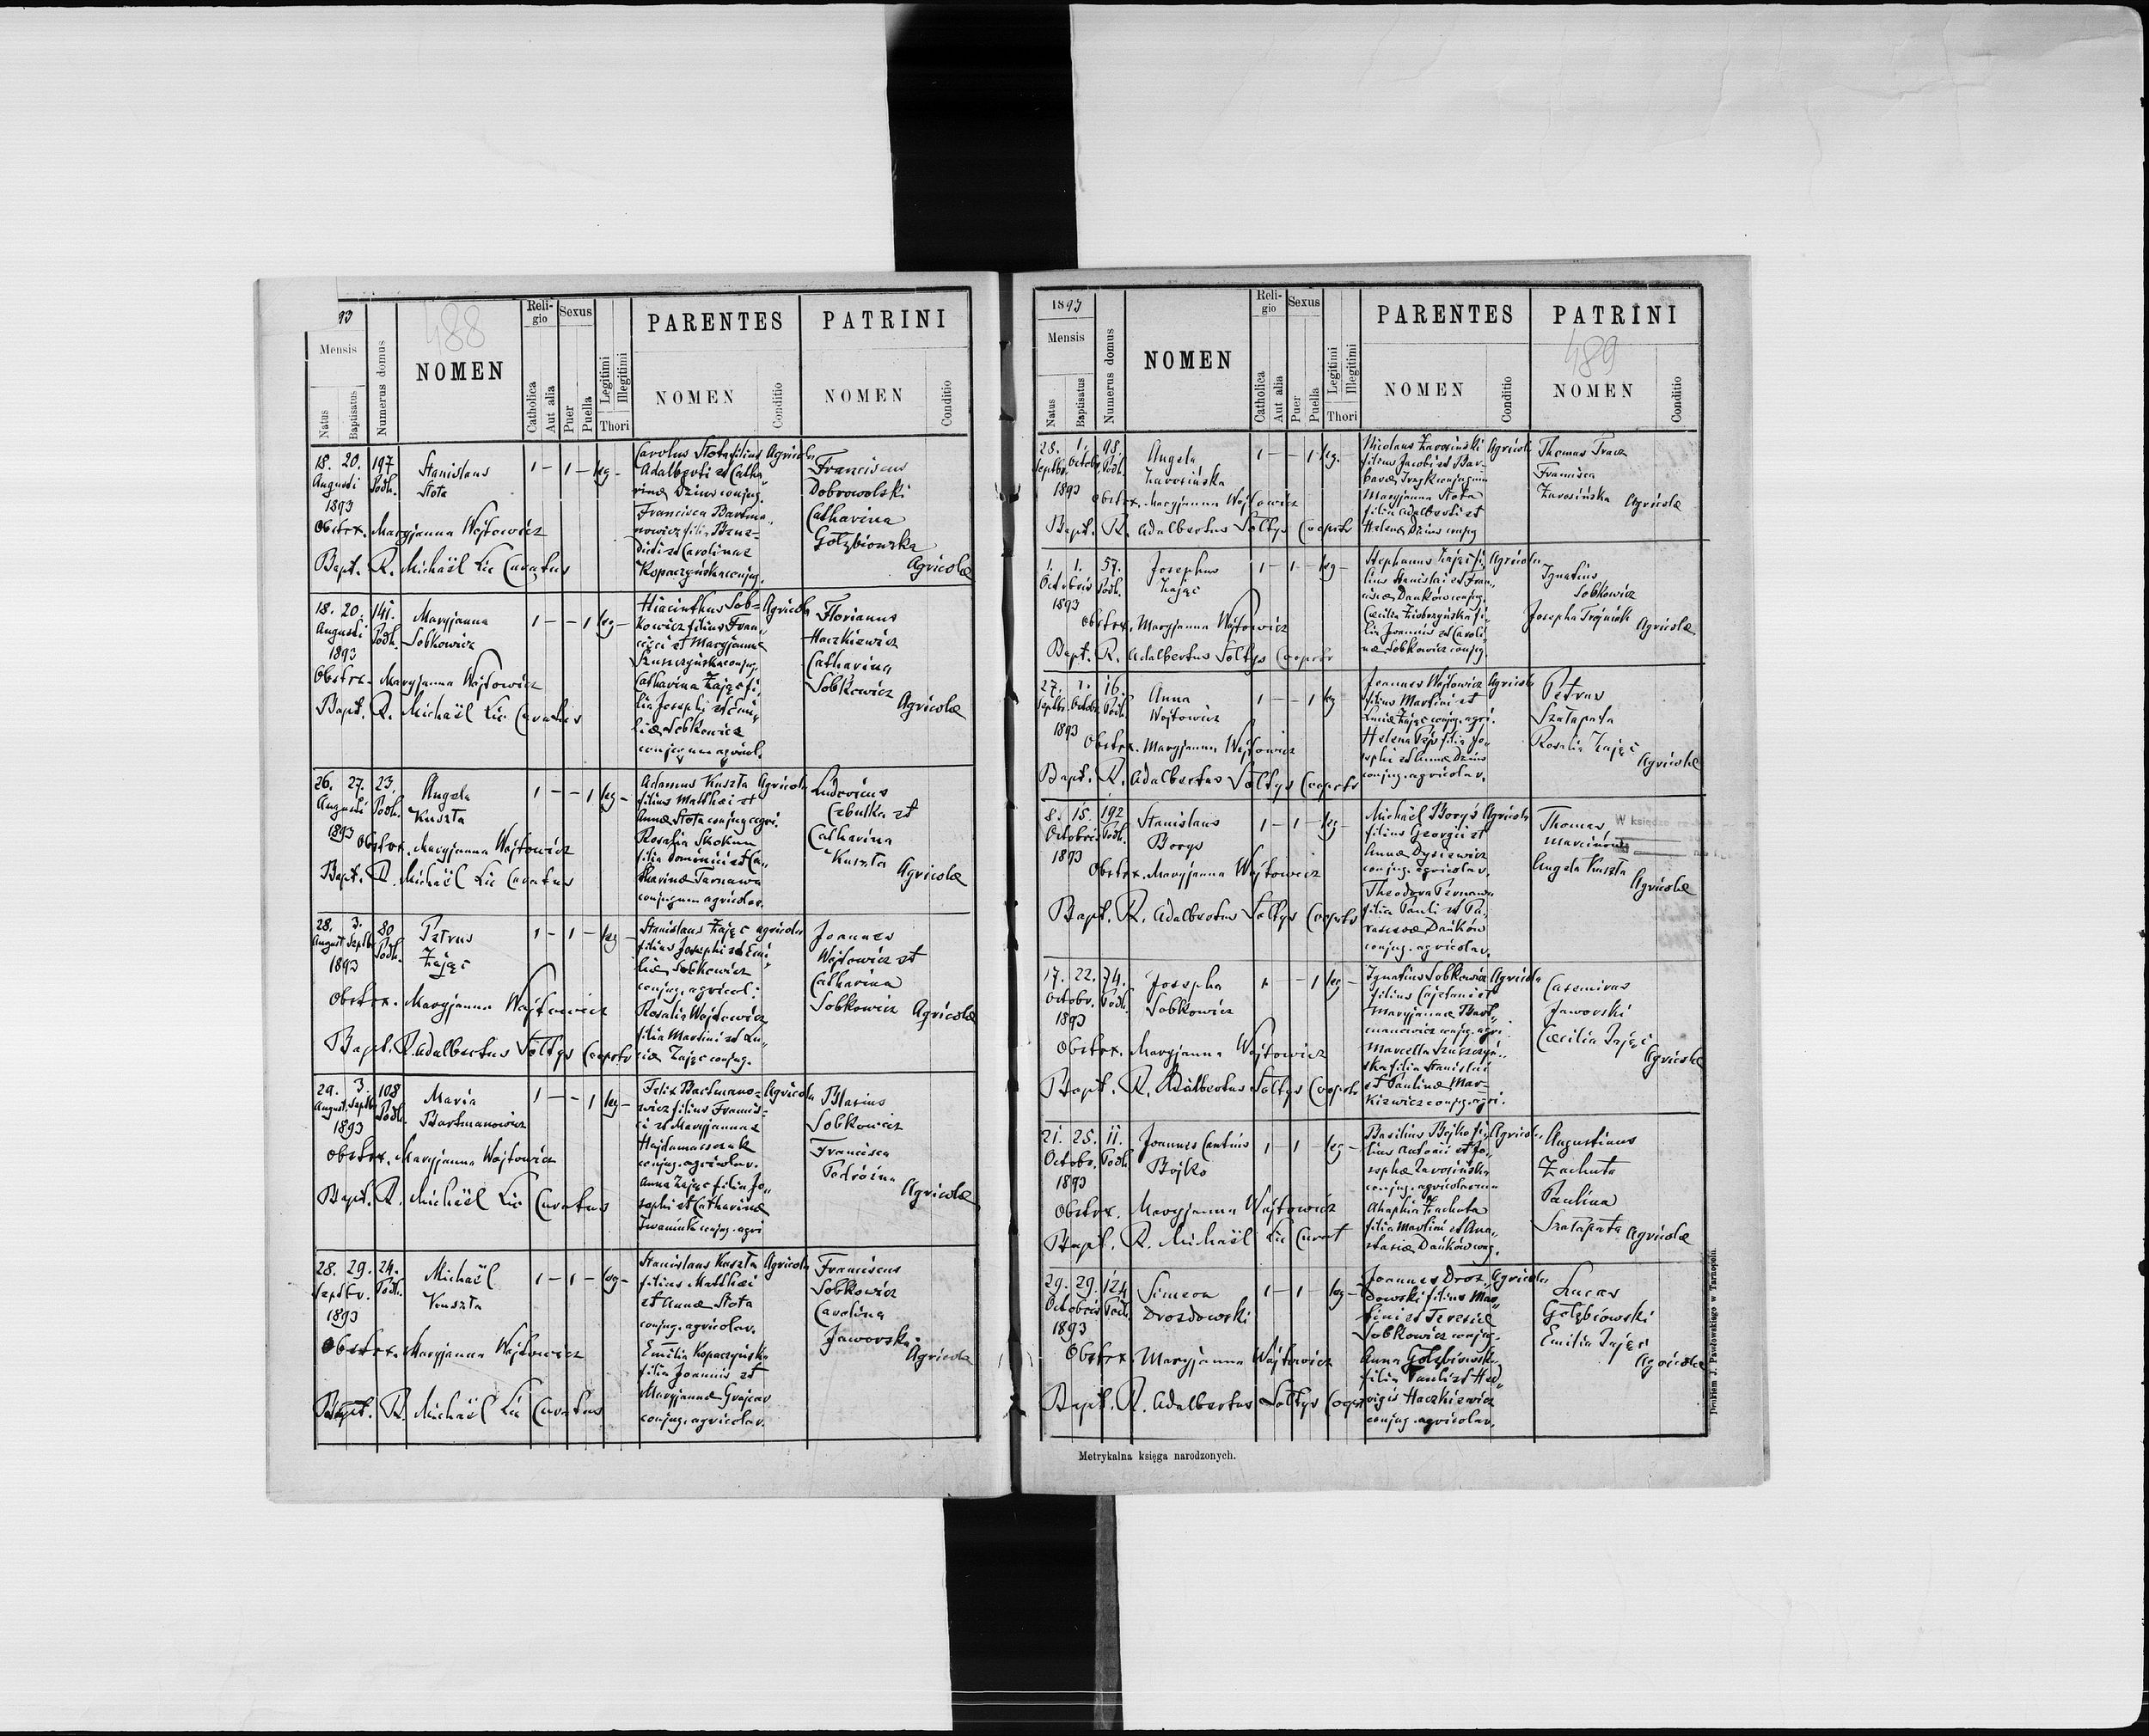 93
488
Mensis
Natus
Baptisatus
Numerus domus
NOMEN
Reli-
gio
Catholica
Aut alia
Sexus
Puer
Puella
Legitimi
Illegitimi
Thori
PARENTES
NOMEN
Conditio
PATRINI
NOMEN
Conditio
18. 20. 197
Augusti Podh.
1893
Stanislaus
Stota
1 – 1 – leg –
Carolus Stota filius Agricola
Adalberti et Catha„
rinæ Dzius conjug.
Francisca Bartma„
nowicz filia Bene-
dicti et Carolinae
Kopaczyńska conjug.
Franciscus
Dobrowolski
Catharina
Gołębiowska
Agricolæ
Obstrx. Maryjanna Wojtowicz
Bapt. R. Michaël Lic Curatus
18. 20. 141.
Augusti Podh.
1893
Maryjanna
Sobkowicz
1 – – 1 leg –
Hiacinthus Sob- Agricola
kowicz filius Fran„
cisci et Maryjannæ
Szuszczyńska conjug.
Catharina Zając fi„
lia Josephi et Emi„
liæ Sobkowicz
conjugum agricol.
Florianus
Haczkiewicz
Catharina
Sobkowicz
Agricolæ
Obstrx. Maryjanna Wojtowicz
Bapt. R. Michaël Lic Curatus
26. 27. 23.
Augusti Podh.
1893
Angela
Kuszta
1 – – 1 leg –
Adamus Kuszta Agricola
filius Matthæi et
Annæ Stota conjug. agri.
Rosalia Skokun
filia Dominici et Ca„
tharinæ Tarnawa
conjugum agricolar.
Ludovicus
Cebulka et
Catharina
Kuszta
Agricolæ
Obstrx. Maryjanna Wojtowicz
Bapt. R. Michaël Lic Curatus
28. 3. 80
August. Septbr. Podh.
1893
Petrus
Zając
1 – 1 – leg –
Stanislaus Zając agricola
filius Josephi et Emi„
liæ Sobkowicz
conjug. agricol.
Rosalia Wojtowicz
filia Martini et Lu„
ciæ Zając conjug.
Joannes
Wojtowicz et
Catharina
Sobkowicz
Agricolæ
Obstrx. Maryjanna Wojtowicz
Bapt. R. Adalbertus Sołtys Cooprtr
29. 3. 108
August. Septbr. Podh.
1893
Maria
Bartmanowicz
1 – – 1 leg –
Felix Bartmano- Agricola
wicz filius Francis-
ci et Maryjannae
conjug. agricolar.
Anna Zając filia Jo„
sephi et Catharinæ
Iwaniuk conjug. agri
Blasius
Sobkowicz
Francisca
Podróżna
Agricolæ
Obstrx. Maryjanna Wojtowicz
Bapt. R. Michaël Lic Curatus
28. 29. 24.
Septbr. Podh.
1893
Michaël
Kuszta
1 – 1 – leg –
Stanislaus Kuszta Agricola
filius Matthæi
et Annæ Stota
conjug. agricolar.
Emilia Kopaczyńska
filia Joannis et
Maryjannæ
conjug. agricolar.
Franciscus
Sobkowicz
Carolina
Jaworska
Agricolæ
Obstrx. Maryjanna Wojtowicz
Bapt. R. Michaël Lic Curatus
1893
Mensis
Natus
Baptisatus
Numerus domus
NOMEN
Reli-
gio
Catholica
Aut alia
Sexus
Puer
Puella
Legitimi
Illegitimi
Thori
PARENTES
NOMEN
Conditio
PATRINI
489
NOMEN
Conditio
28. 1. 98.
Septbr. Octobr. Podh.
1893
Angela
Zarosińska
1 – – 1 leg.
Nicolaus Zarosiński Agricola
filius Jacobi et Bar-
baræ conjugum
Maryjanna Stota
filia Adalberti et
Helenæ Dzius conjug
Thomas Tracz
Francisca
Zarosińska
Agricolæ
Obstrx. Maryjanna Wojtowicz
Bapt. R. Adalbertus Sołtys Cooprtr
1. 1. 57.
Octobris Podh.
1893
Josephus
Zając
1 – 1 – leg –
Stephanus Zając fi„ Agricola
lius Stanislai et Fran„
ciscæ Dańków conjug.
Cæcilia Ziobrzyńska fi„
lia Joannis et Caroli„
næ Sobkowicz conjug.
Ignatius
Sobkowicz
Josepha Trójniak
Agricolæ
Obstrx. Maryjanna Wojtowicz
Bapt. R. Adalbertus Sołtys Cooprtr
27. 1. 16.
Septbr. Octobr. Podh.
1893
Anna
Wojtowicz
1 – – 1 leg
Joannes Wojtowicz Agricola
filius Martini et
Luciæ Zając conjug. agri.
Helena filia Jo„
sephi et Annæ Dzius
conjug. agricolar.
Petrus
Szałapata
Rosalia Zając
Agricolæ
Obstrx. Maryjanna Wojtowicz
Bapt. R. Adalbertus Sołtys Cooprtr
8. 15. 192
Octobris Podh.
1893
Stanislaus
Borys
1 – 1 – leg –
Michaël Boryś Agricola
filius Georgii et
Annæ Dysiewicz
conjug. agricolar.
Theodora Tarnawa
filia Pauli et Pa„
rascevæ Dańków
conjug. agricolar.
Thomas
Marciniów
Angela Kuszta
Agricolæ
W księdze
Obstrx. Maryjanna Wojtowicz
Bapt. R. Adalbertus Sołtys Cooprtr
17. 22. 74.
Octobr. Podh.
1893
Josepha
Sobkowicz
1 – – 1 leg –
Ignatius Sobkowicz Agricola
filius Cajetani et
Maryjannae Bart„
manowicz conjug. agri
Marcella Szuszczyń„
ska filia Stanislai
et Paulinæ Mar-
kiewicz conjug. agri.
Casimirus
Jaworski
Cæcilia Zając
Agricolæ
Obstrx. Maryjanna Wojtowicz
Bapt. R. Adalbertus Sołtys Cooprtr
21. 25. 11.
Octobr. Podh.
1893
Joannes Cantius
Bojko
1 – 1 – leg –
Basilius Bojko fi„ Agricola
lius Antonii et Jo„
sephæ Zarosińska
conjug. agricolarum
Ahaphia Zachuta
filia Martini et Ana„
stasiæ Dańków conj.
Augustinus
Zachuta
Paulina
Szałapata Agricolæ
Obstrx. Maryjanna Wojtowicz
Bapt. R. Michaël Lic Curat
29. 29. 124
Octobris Podh.
1893
Simeon
Drozdowski
1 – 1 – leg –
Joannes Droz„ Agricola
dowski filius Mar„
tini et Teresiæ
Sobkowicz conjug.
Anna Gołębiowska
filia Pauli et Hed„
vigis Haczkiewicz
conjug. agricolar.
Lucas
Gołębiowski
Emilia Zając
Agricolæ
Obstrx. Maryjanna Wojtowicz
Bapt. R. Adalbertus Sołtys Cooper
Metrykalna księga narodzonych.
Drukiem J. Pawłowskiego w Tarnopolu.